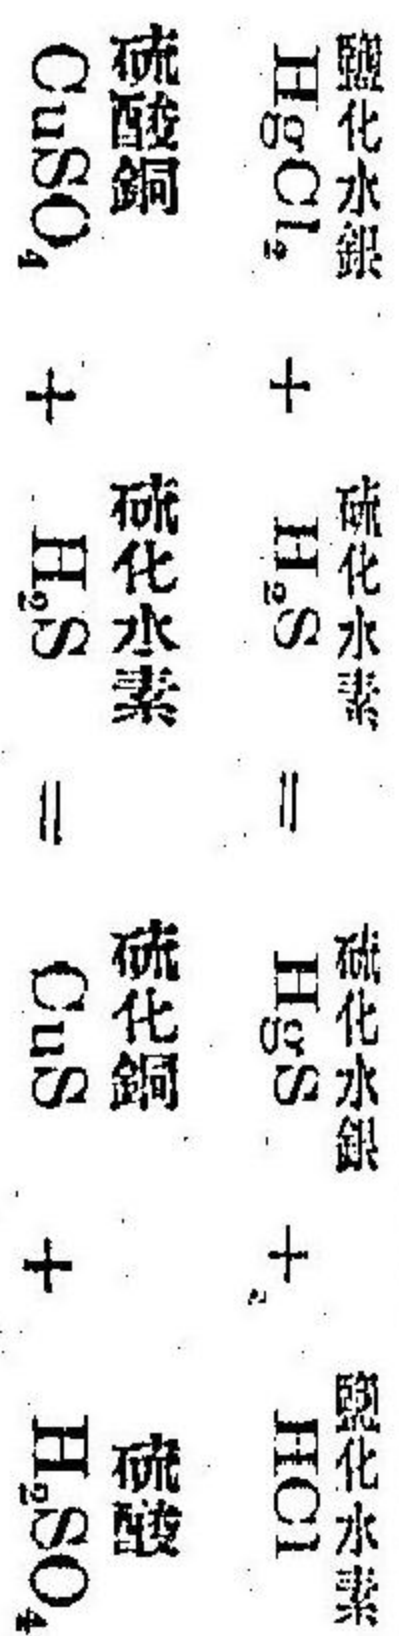 鹽化水銀 硫化水素 硫化水銀 鹽化水素
HgCl₂ + H₂S = HgS + HCl
硫酸銅 硫化水素 硫化銅 硫酸
CuSO₄ + H₂S = CuS + H₂SO₄